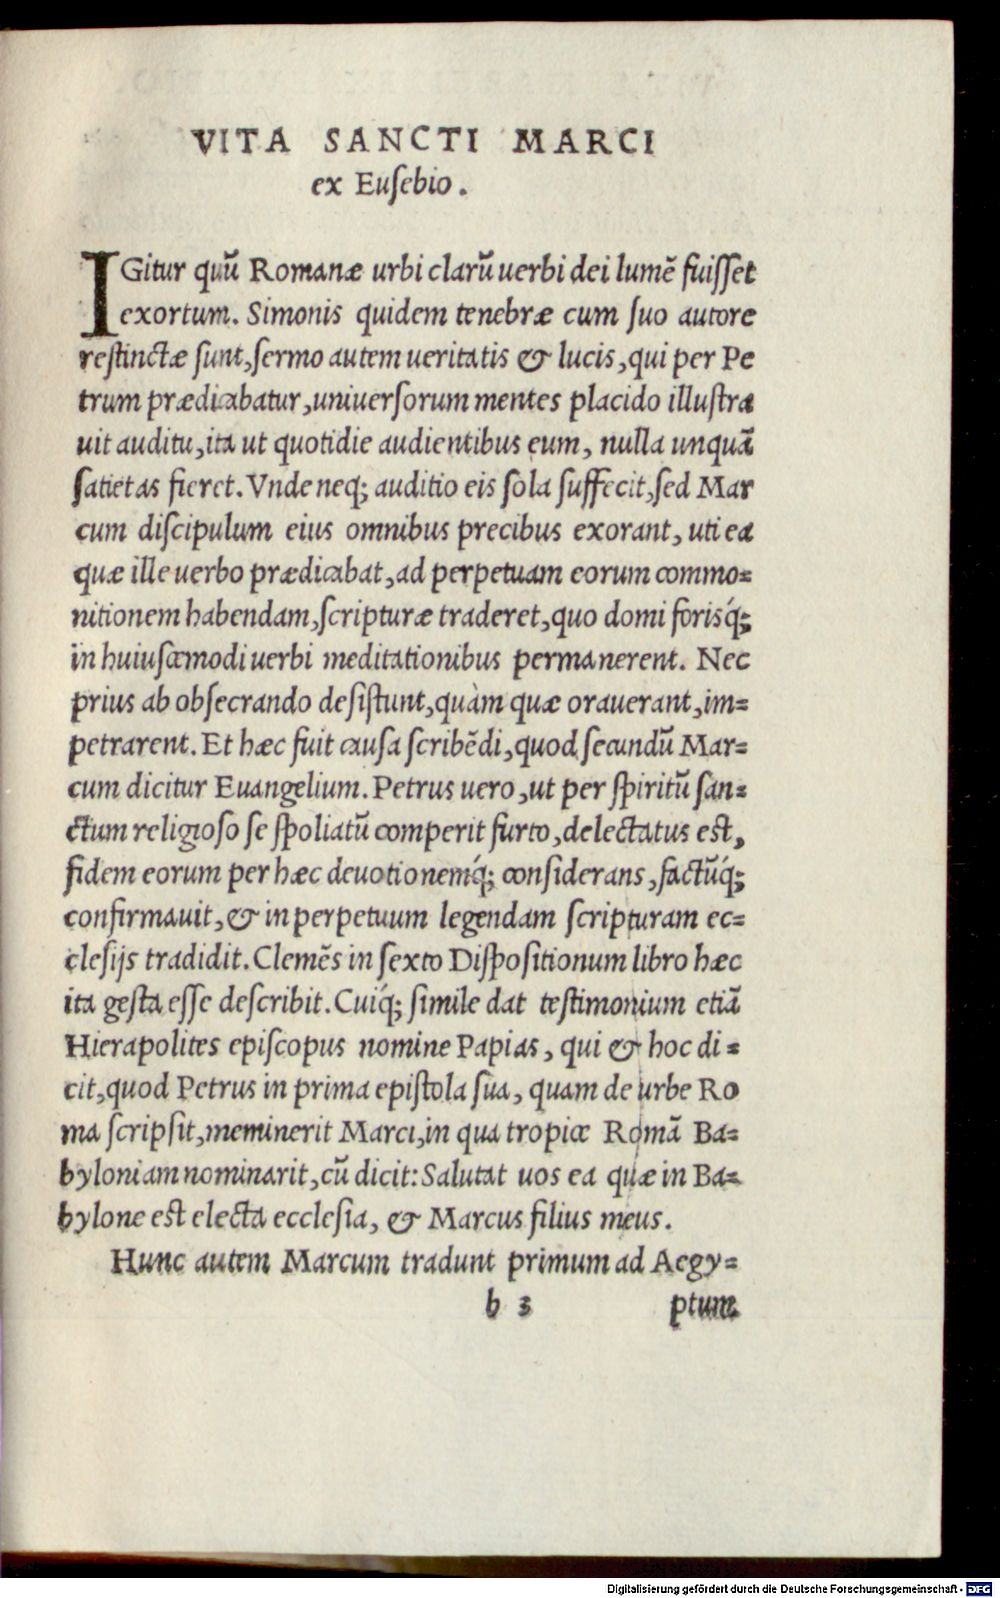 VITA SANCTI MARCI
ex Eusebio.
IGitur quũ Romanæ urbi clarũ uerbi dei lumẽ fuisset
exortum. Simonis quidem tenebræ cum suo autore
restinctæ sunt, sermo autem ueritatis & lucis, qui per Pe
trum prædicabatur, uniuersorum mentes placido illustra
uit auditu, ita ut quotidie audientibus eum, nulla unquã
satietas fieret. Vnde neq; auditio eis sola suffecit, sed Mar
cum discipulum eius omnibus precibus exorant, uti ea
quæ ille uerbo prædicabat, ad perpetuam eorum commo=
nitionem habendam, scripturæ traderet, quo domi forisq́;
in huiuscemodi uerbi meditationibus permanerent. Nec
prius ab obsecrando desistunt, quàm quæ orauerant, im=
petrarent. Et hæc fuit causa scribẽdi, quod secundũ Mar=
cum dicitur Euangelium. Petrus uero, ut per spiritũ san=
ctum religioso se spoliatũ comperit furto, delectatus est,
fidem eorum per hæc deuotionemq́; considerans, factũq́;
confirmauit, & in perpetuum legendam scripturam ec=
clesijs tradidit. Clemẽs in sexto Dispositionum libro hæc
ita gesta esse describit. Cuiq́; simile dat testimonium etiã
Hierapolites episcopus nomine Papias, qui & hoc di=
cit, quod Petrus in prima epistola sua, quam de urbe Ro
ma scripsit, meminerit Marci, in qua tropice Romã Ba=
byloniam nominarit, cũ dicit: Salutat uos ea quæ in Ba=
bylone est electa ecclesia, & Marcus filius meus.
Hunc autem Marcum tradunt primum ad Aegy=
b 3 ptum
Digitalisierung gefördert durch die Deutsche Forschungsgemeinschaft - DFG